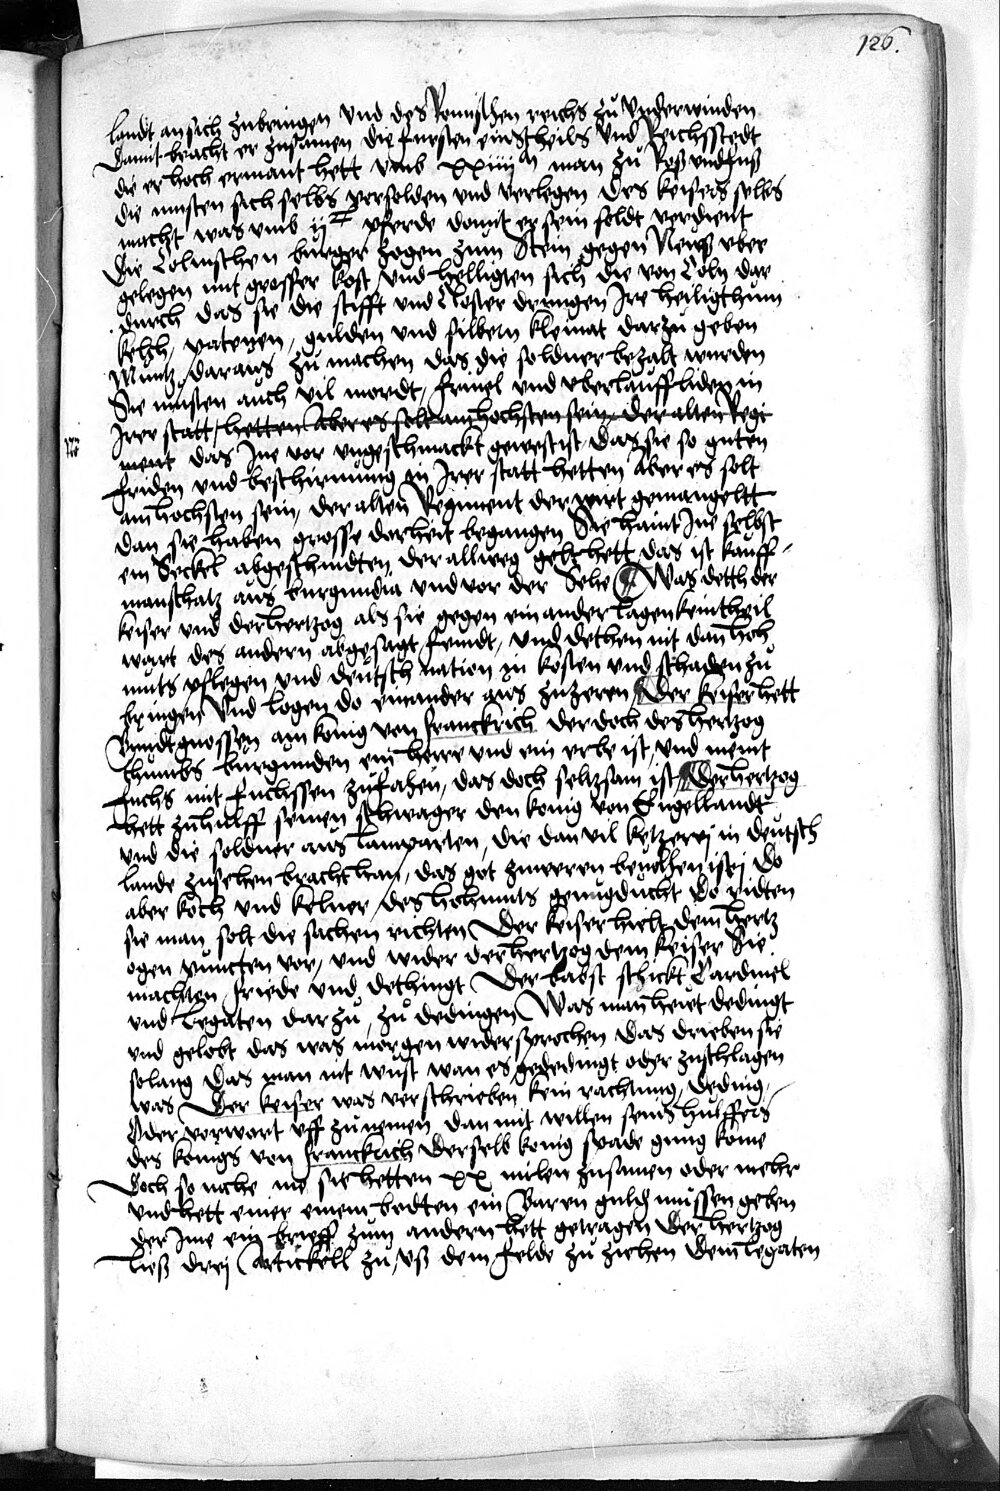 126.
landt an sich zubringen und des Romischen reichs zu underwinden
Damit bracht er zusamen die fursten eins theils und Reichsstedt
die er hoch ermant hett umb xxiiii m man zu Roß und fuß
die musten sich selbs versolden und verlegen Des keisers selbs
macht was umb ii pferde domit er sein soldt verdient
Die Colnischen burger zogen zum Stein gegen Neuß uber
gelegen mit grosser kost und helligten sich die von Coln dar
durch das sie die stifft und Closter drungen Ire heiligthum
kelch, patenen, gulden und silbern kleinat darzu geben
Muntz daraus zu machen das die soldner bezalt wurden
Sie musten auch vil mordt, frevel und uberlauff liden in
Irer statt, hetten Aber es solt am hochsten sein, der alten Regi
ment das Ine vor ungeschmackt gewest ist Das sie so guten
friden und beschirmung in Irer statt hetten Aber es solt
am hochsten sein, der alten Regiment der wirt gemangeltt
dan sie haben grosse dorheit begangen Sie haint Ine selbst
ein Seckel abgeschnidten der allweg gelt hett das ist kauff-
manschatz aus burgundia und vor der Sehe Was detth der
keiser und der hertzog als sie gegen ein ander lagen kein theil
wart des andern abgesagt feindt, und dethen nit dan hoh
muts pflegen und deutsch nation in kosten und schaden zu
bringen Und logen do einander aus zuzeren Der keiser hett
Bundtgnossen am konig von franckrich der doch des hertzog
thumbs burgunden ein herre und ein erbe ist, und meint
fuchs mit fuchssen zufahen, das doch seltzsam ist, Der hertzog
hett zu hulff seinen schwager den konig von Engellandt
und die soldner aus lamparten, die dan vil ketzerei in deutsch
lande zusehen bracht han, das got zuweren bevolhen ist Do
aber koch und kelner, des hohmuts genug ducht Do ridten
sie man solt die sachen richten Der keiser hielt dem hertz
ogen puncten vor, und wider der hertzog dem keiser Sie
machten friede und dethingt Der babst schickt Cardinel
und legaten darzu, zu dedingen Was man heut dedingt
und gelobt das was morgen widersprochen Das drieben sie
solang Das man nit wust wan es gededingt oder zuschlagen
was Der keiser was verschrieben kein rachtung, deding,
Oder vorwort uff zunemen dan mit willen seins hulffers
des konigs von franckrich Derselb konig spade gnug kome
Doch so nache nie sie hetten xx milen zusamen oder mehr
und hett einer einem bodten ein Baren guld mussen geben
der Ime ein brieff zum andern hett getragen Der hertzog
ließ drei Artickell zu, uß dem felde zu ziehen Dem legaten